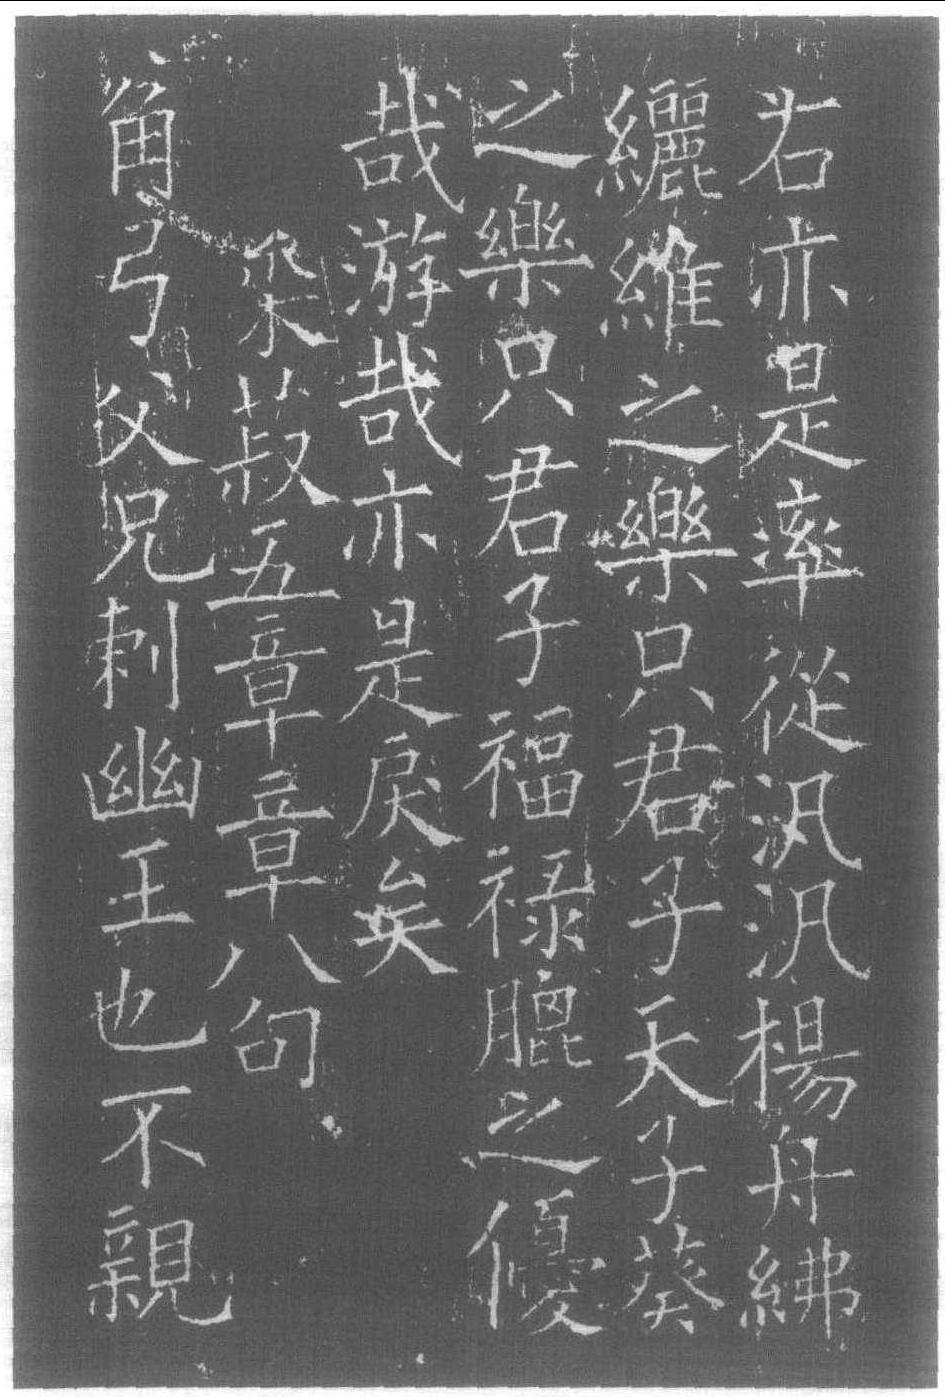 右亦是率從汎汎楊舟紼
纚維之樂只君子天子葵
之樂只君子福禄膍之優
哉游哉亦是戾矣
采菽五章章八句
角弓父兄刺幽王也不親